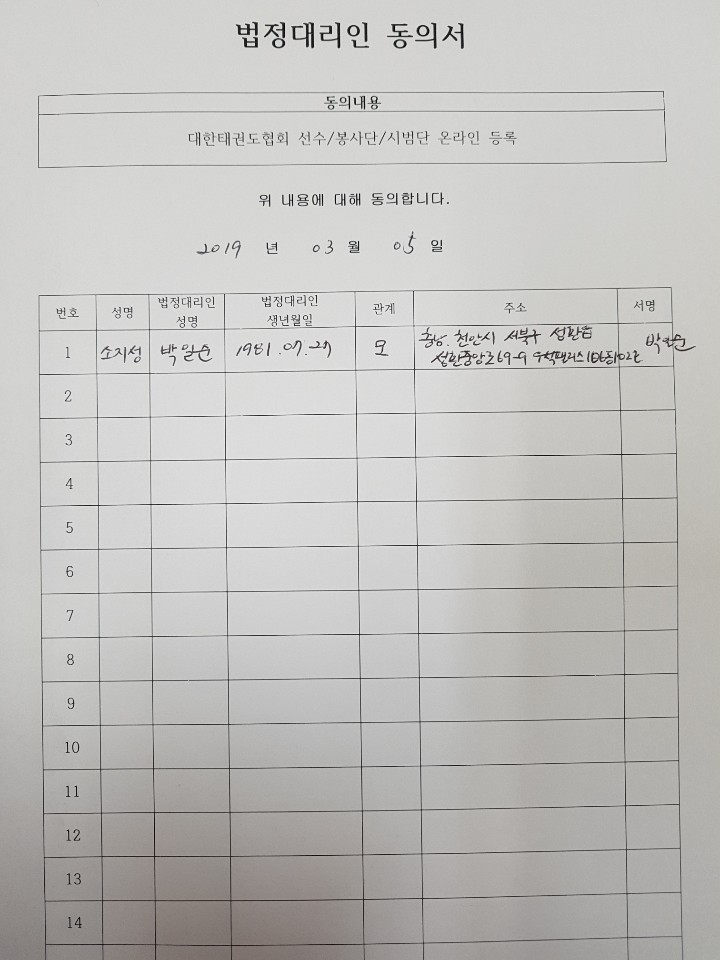 법정대리인 동의서
동의내용
대한태권도협회 선수/봉사단/시범단 온라인 등록
위 내용에 대해 동의합니다.
2019 년 03 월 05 일
번호 성명 법정대리인 성명 법정대리인 생년월일 관계 주소 서명
1 소지성 박일순 1981.07.27 모 충남. 천안시 서북구 성환읍
성환중앙로 69-9
2
3
4
5
6
7
8
9
10
11
12
13
14